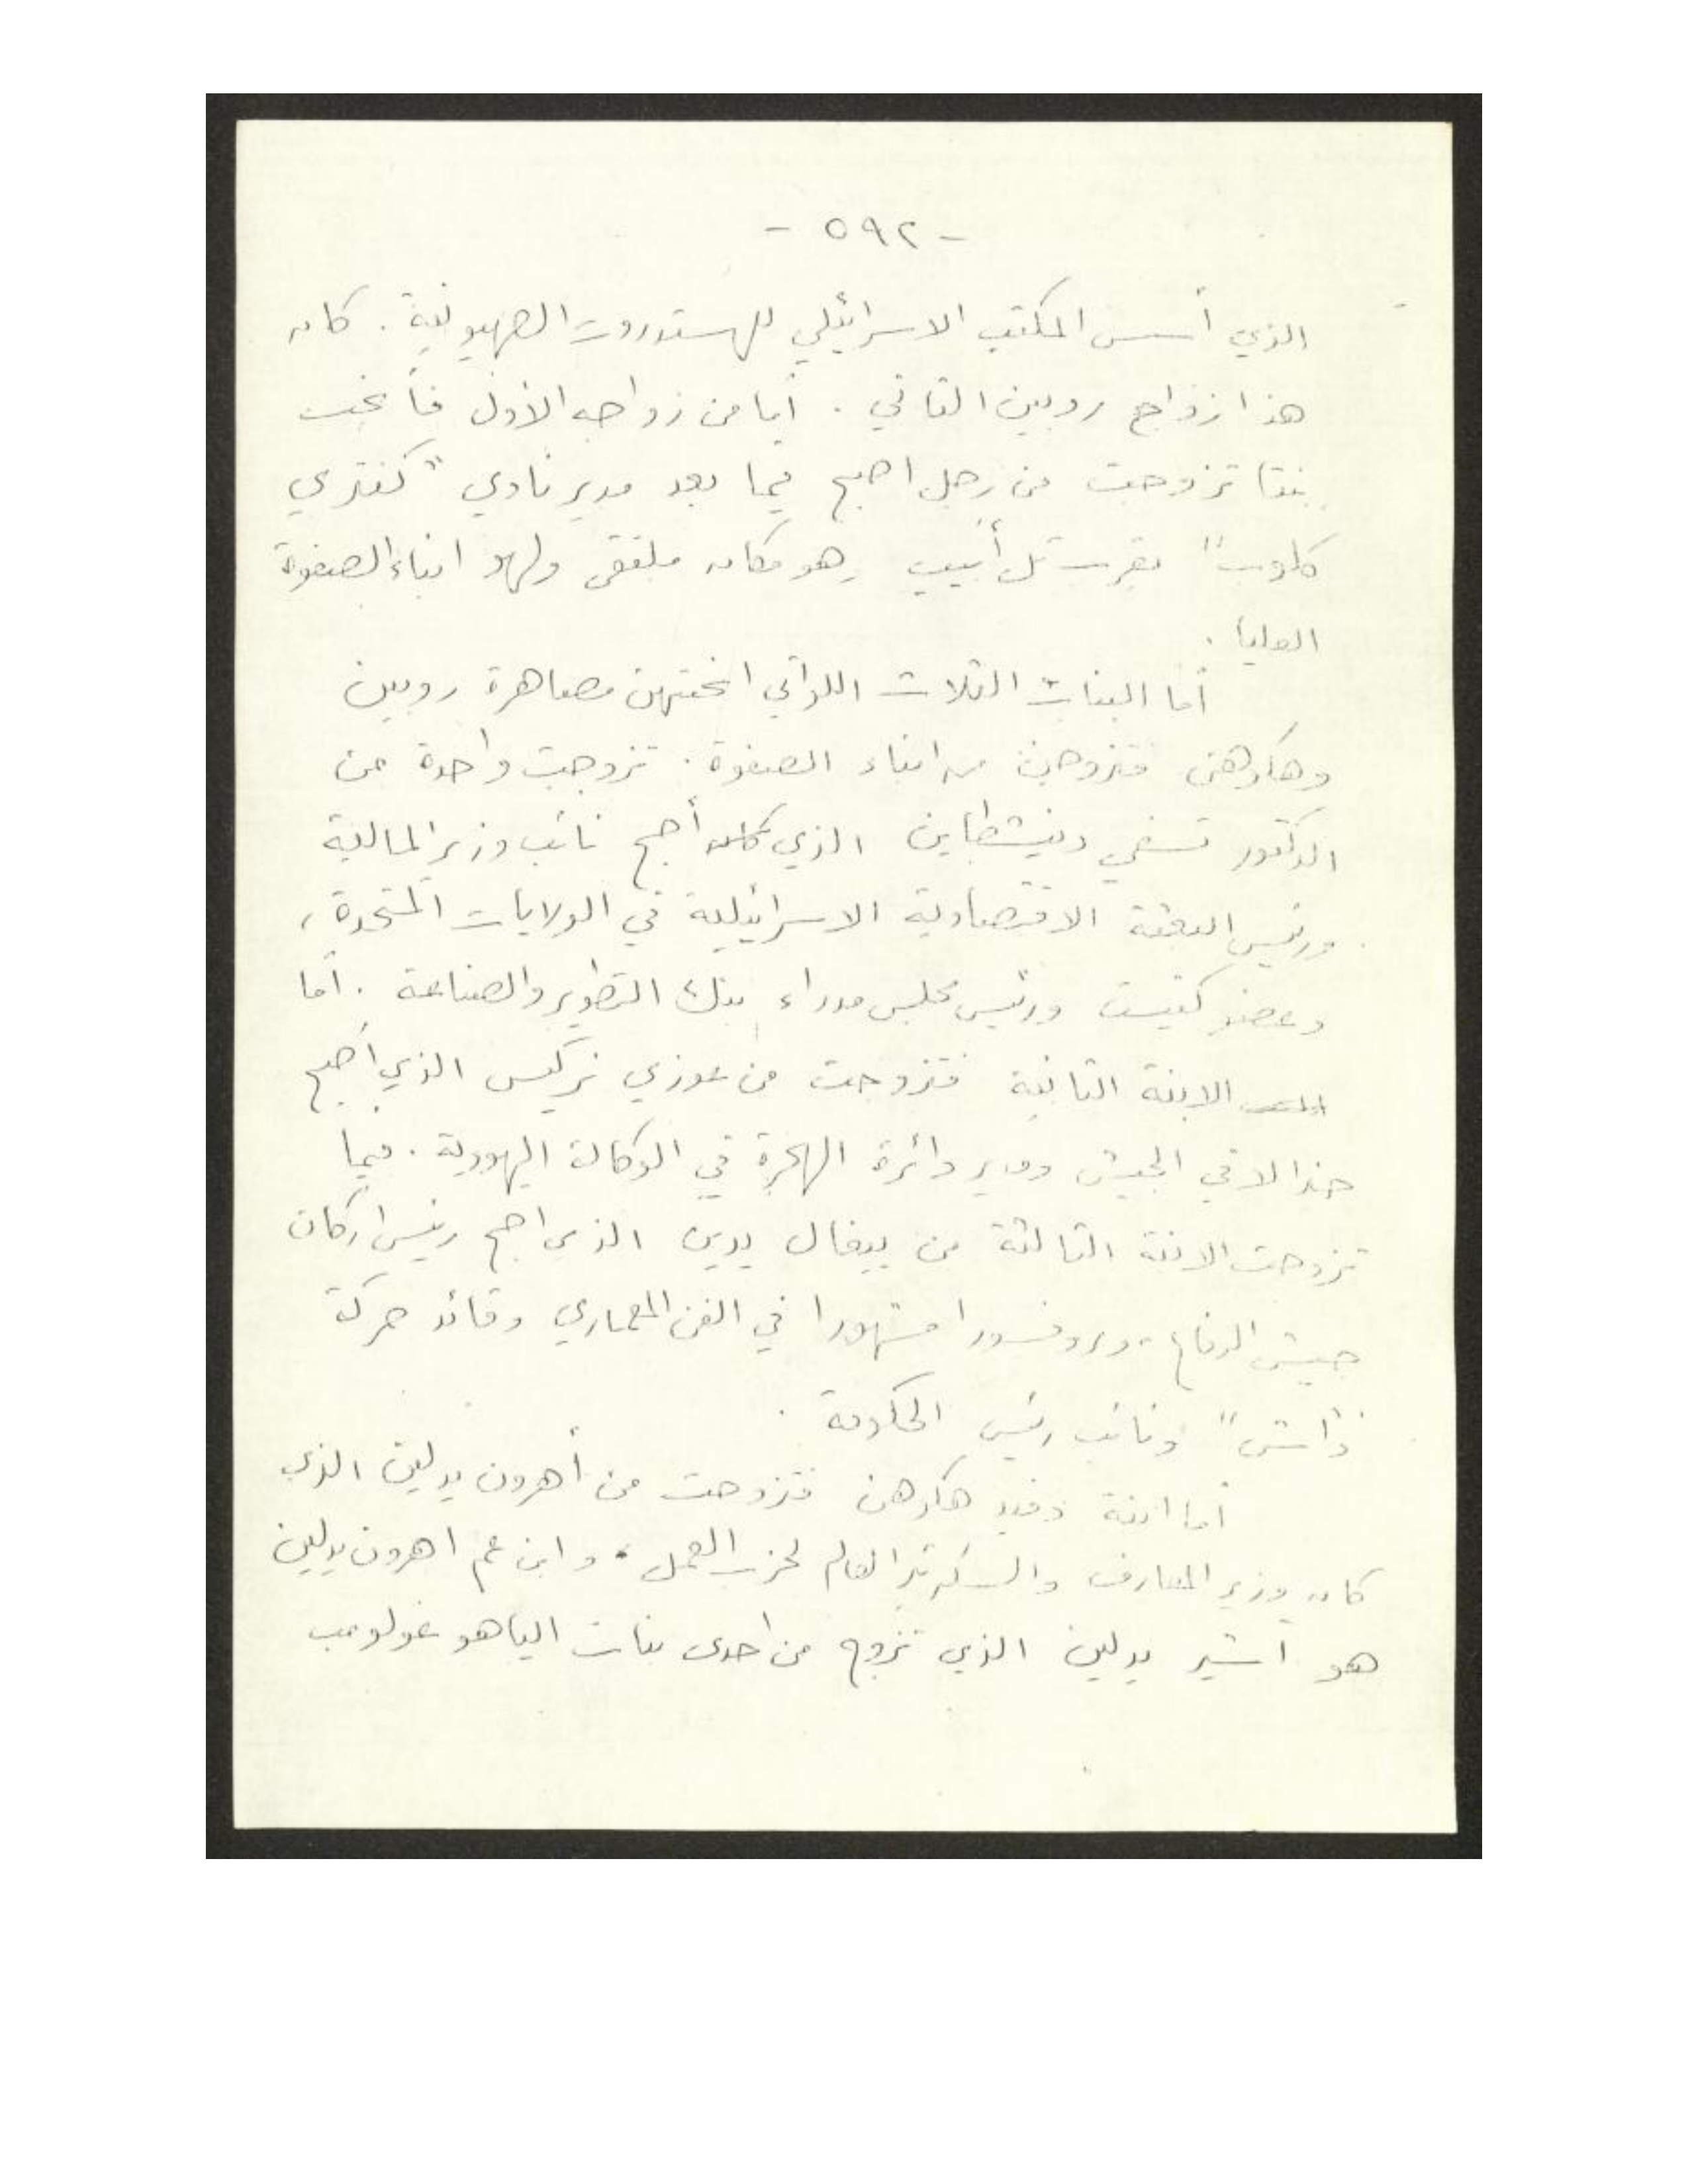 - ٥٩٢ -
الذي أسس المكتب الاسرائيلي للهستدروت الصهيونية . كان
هذا زواج روبين الثاني . أما من زواجه الأول فأنجب
بنتا تزوجت من رجل اصبح فيما بعد مدير نادي "كنتري
كلوب" بقرب تل أبيب وهو مكان ملتقى ولهو ابناء الصفوة
العليا .
أما البنات الثلاث اللواتي انجبتهن مصاهرة روبين
وهكوهن فتزوجن من ابناء الصفوة . تزوجت واحدة من
الدكتور تسفي دينشطاين الذي أصبح نائب وزير المالية
ورئيس البعثة الاقتصادية الاسرائيلية في الولايات المتحدة ،
وعضو كنيست ورئيس مجلس مدراء بنك التطوير والصناعة . أما
الابنة الثانية فتزوجت من عوزي نركيس الذي أصبح
جنرالا في الجيش ومدير دائرة الهجرة في الوكالة اليهودية . فيما
تزوجت الابنة الثالثة من ييغال يدين الذي اصبح رئيس اركان
جيش الدفاع ، وبروفسورا مشهورا في الفن المعماري وقائد حركة
"داش" ونائب رئيس الحكومة .
أما ابنة هكوهن فتزوجت من أهرون يدلين الذي
كان وزير المعارف والسكرتير العام لحزب العمل ، وابن عم اهرون يدلين
هو اشير يدلين الذي تزوج من احدى بنات الياهو غولومب